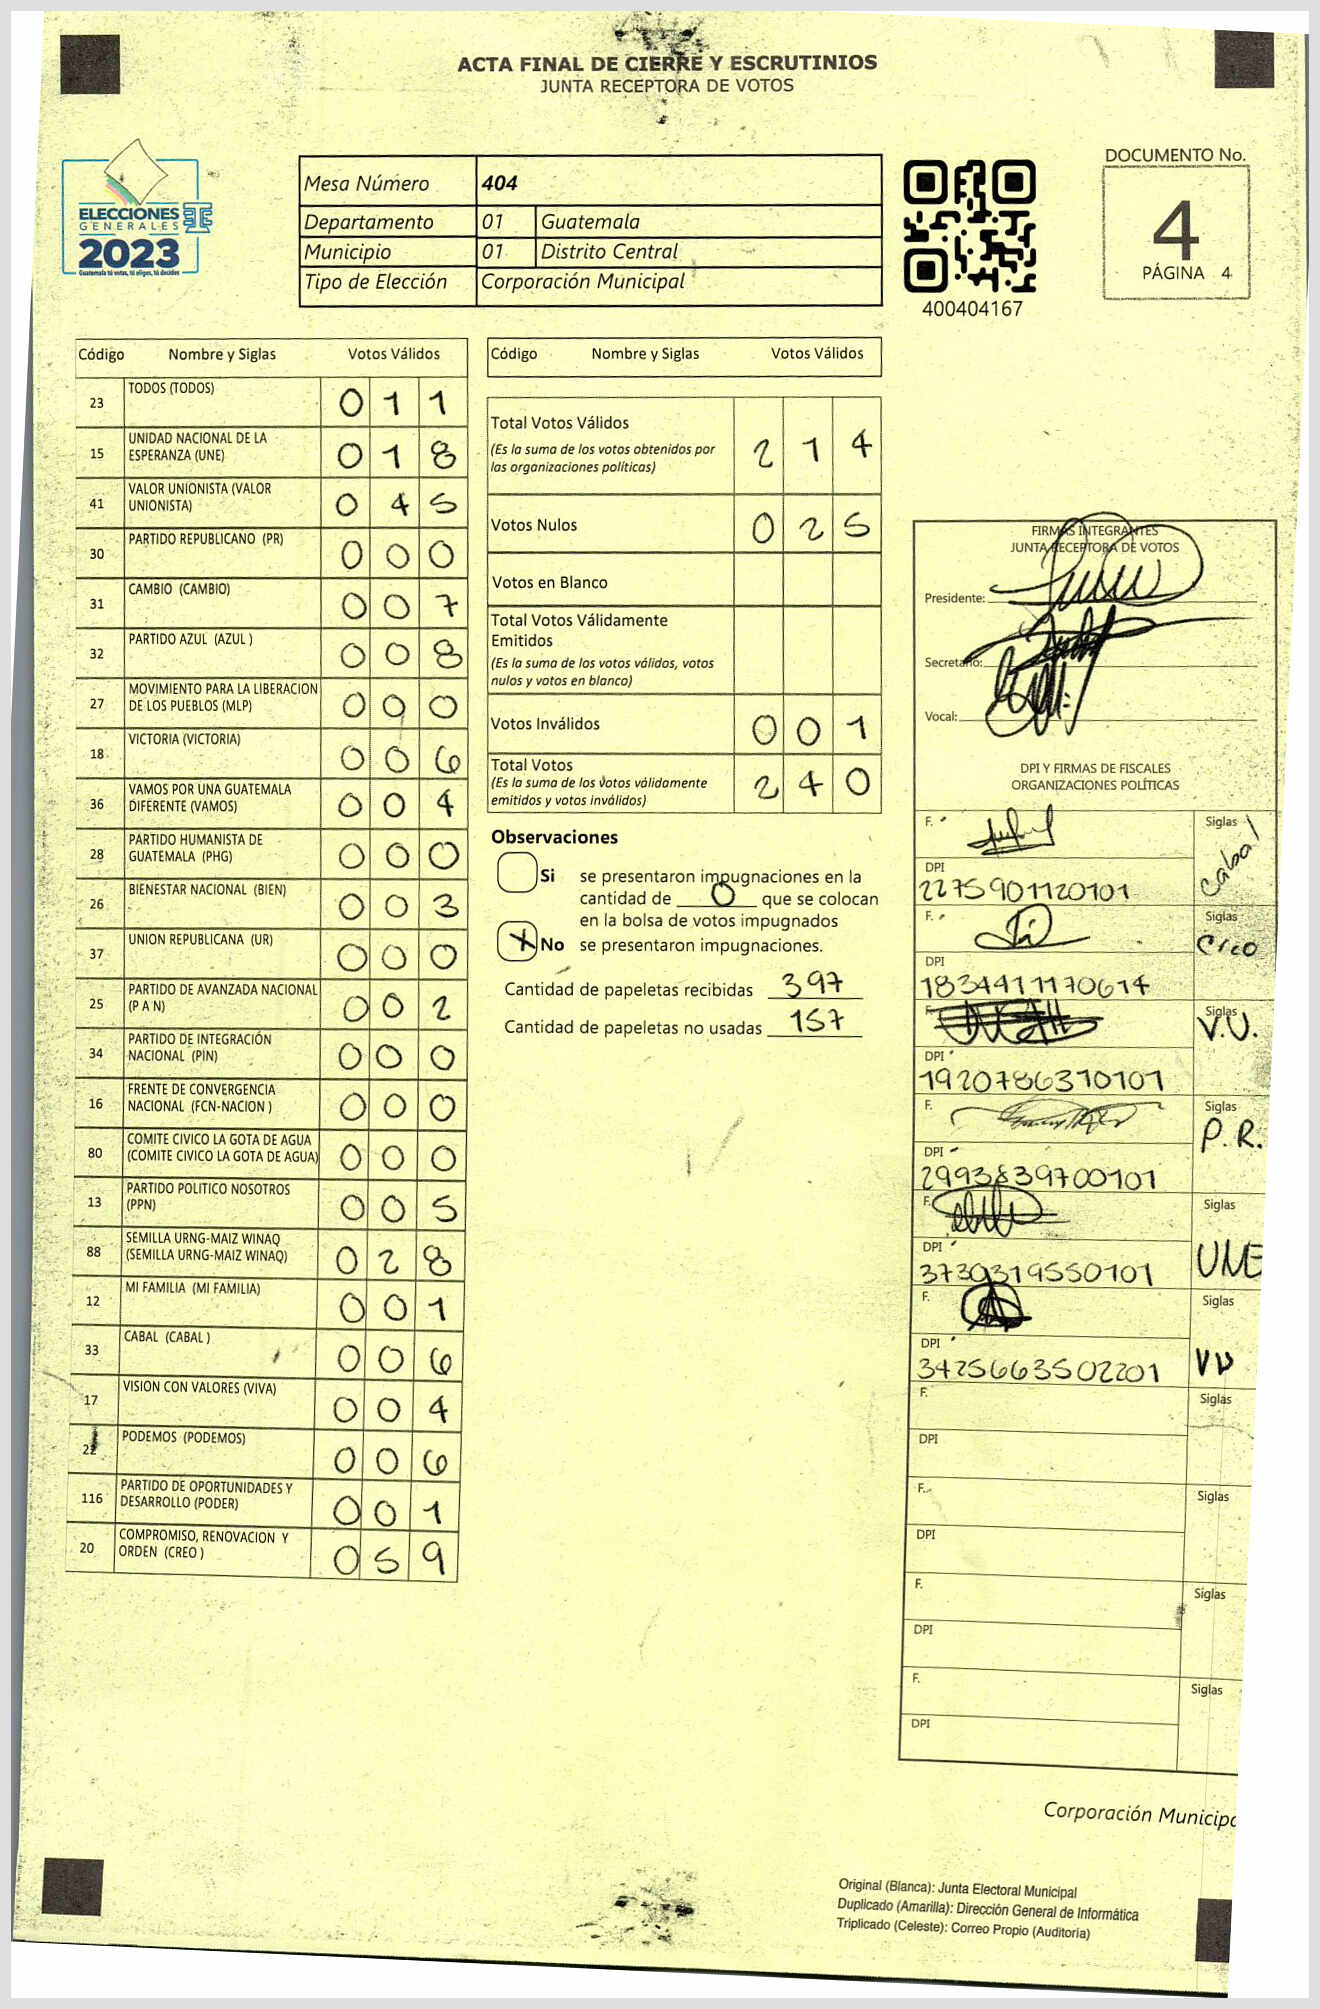 ACTA FINAL DE CIERRE Y ESCRUTINIOS
JUNTA RECEPTORA DE VOTOS
ELECCIONES
GENERALES
2023
Guatemala tú votas, tú eliges, tú decides
Mesa Número 404
Departamento 01 Guatemala
Municipio 01 Distrito Central
Tipo de Elección Corporación Municipal
400404167
DOCUMENTO No.
4
PÁGINA 4
Código Nombre y Siglas Votos Válidos
23 TODOS (TODOS) 0 1 1
15 UNIDAD NACIONAL DE LA ESPERANZA (UNE) 0 1 8
41 VALOR UNIONISTA (VALOR UNIONISTA) 0 4 5
30 PARTIDO REPUBLICANO (PR) 0 0 0
31 CAMBIO (CAMBIO) 0 0 7
32 PARTIDO AZUL (AZUL ) 0 0 8
27 MOVIMIENTO PARA LA LIBERACION DE LOS PUEBLOS (MLP) 0 0 0
18 VICTORIA (VICTORIA) 0 0 6
36 VAMOS POR UNA GUATEMALA DIFERENTE (VAMOS) 0 0 4
28 PARTIDO HUMANISTA DE GUATEMALA (PHG) 0 0 0
26 BIENESTAR NACIONAL (BIEN) 0 0 3
37 UNION REPUBLICANA (UR) 0 0 0
25 PARTIDO DE AVANZADA NACIONAL (P A N) 0 0 2
34 PARTIDO DE INTEGRACIÓN NACIONAL (PIN) 0 0 0
16 FRENTE DE CONVERGENCIA NACIONAL (FCN-NACION ) 0 0 0
80 COMITE CIVICO LA GOTA DE AGUA (COMITE CIVICO LA GOTA DE AGUA) 0 0 0
13 PARTIDO POLITICO NOSOTROS (PPN) 0 0 5
88 SEMILLA URNG-MAIZ WINAQ (SEMILLA URNG-MAIZ WINAQ) 0 2 8
12 MI FAMILIA (MI FAMILIA) 0 0 1
33 CABAL (CABAL ) 0 0 6
17 VISION CON VALORES (VIVA) 0 0 4
22 PODEMOS (PODEMOS) 0 0 6
116 PARTIDO DE OPORTUNIDADES Y DESARROLLO (PODER) 0 0 1
20 COMPROMISO, RENOVACION Y ORDEN (CREO ) 0 5 9
Código Nombre y Siglas Votos Válidos
Total Votos Válidos 2 1 4
(Es la suma de los votos obtenidos por
las organizaciones políticas)
Votos Nulos 0 2 5
Votos en Blanco
Total Votos Válidamente
Emitidos
(Es la suma de los votos válidos, votos
nulos y votos en blanco)
Votos Inválidos 0 0 1
Total Votos 2 4 0
(Es la suma de los votos válidamente
emitidos y votos inválidos)
Observaciones
Si se presentaron impugnaciones en la
cantidad de 0 que se colocan
en la bolsa de votos impugnados
X No se presentaron impugnaciones.
Cantidad de papeletas recibidas 397
Cantidad de papeletas no usadas 157
FIRMAS INTEGRANTES
JUNTA RECEPTORA DE VOTOS
Presidente:
Secretario:
Vocal:
DPI Y FIRMAS DE FISCALES
ORGANIZACIONES POLÍTICAS
F. Siglas Cabal
DPI
2275901120101
F. Siglas Creo
DPI
1834411170614
F. Siglas V.U.
DPI
1920786370101
F. Siglas P.R.
DPI
2993839700101
F. Siglas UNE
DPI
3730319550101
F. Siglas VU
DPI
3425663502201
F. Siglas
DPI
F. Siglas
DPI
F. Siglas
DPI
F. Siglas
DPI
Corporación Municipa
Original (Blanca): Junta Electoral Municipal
Duplicado (Amarilla): Dirección General de Informática
Triplicado (Celeste): Correo Propio (Auditoría)